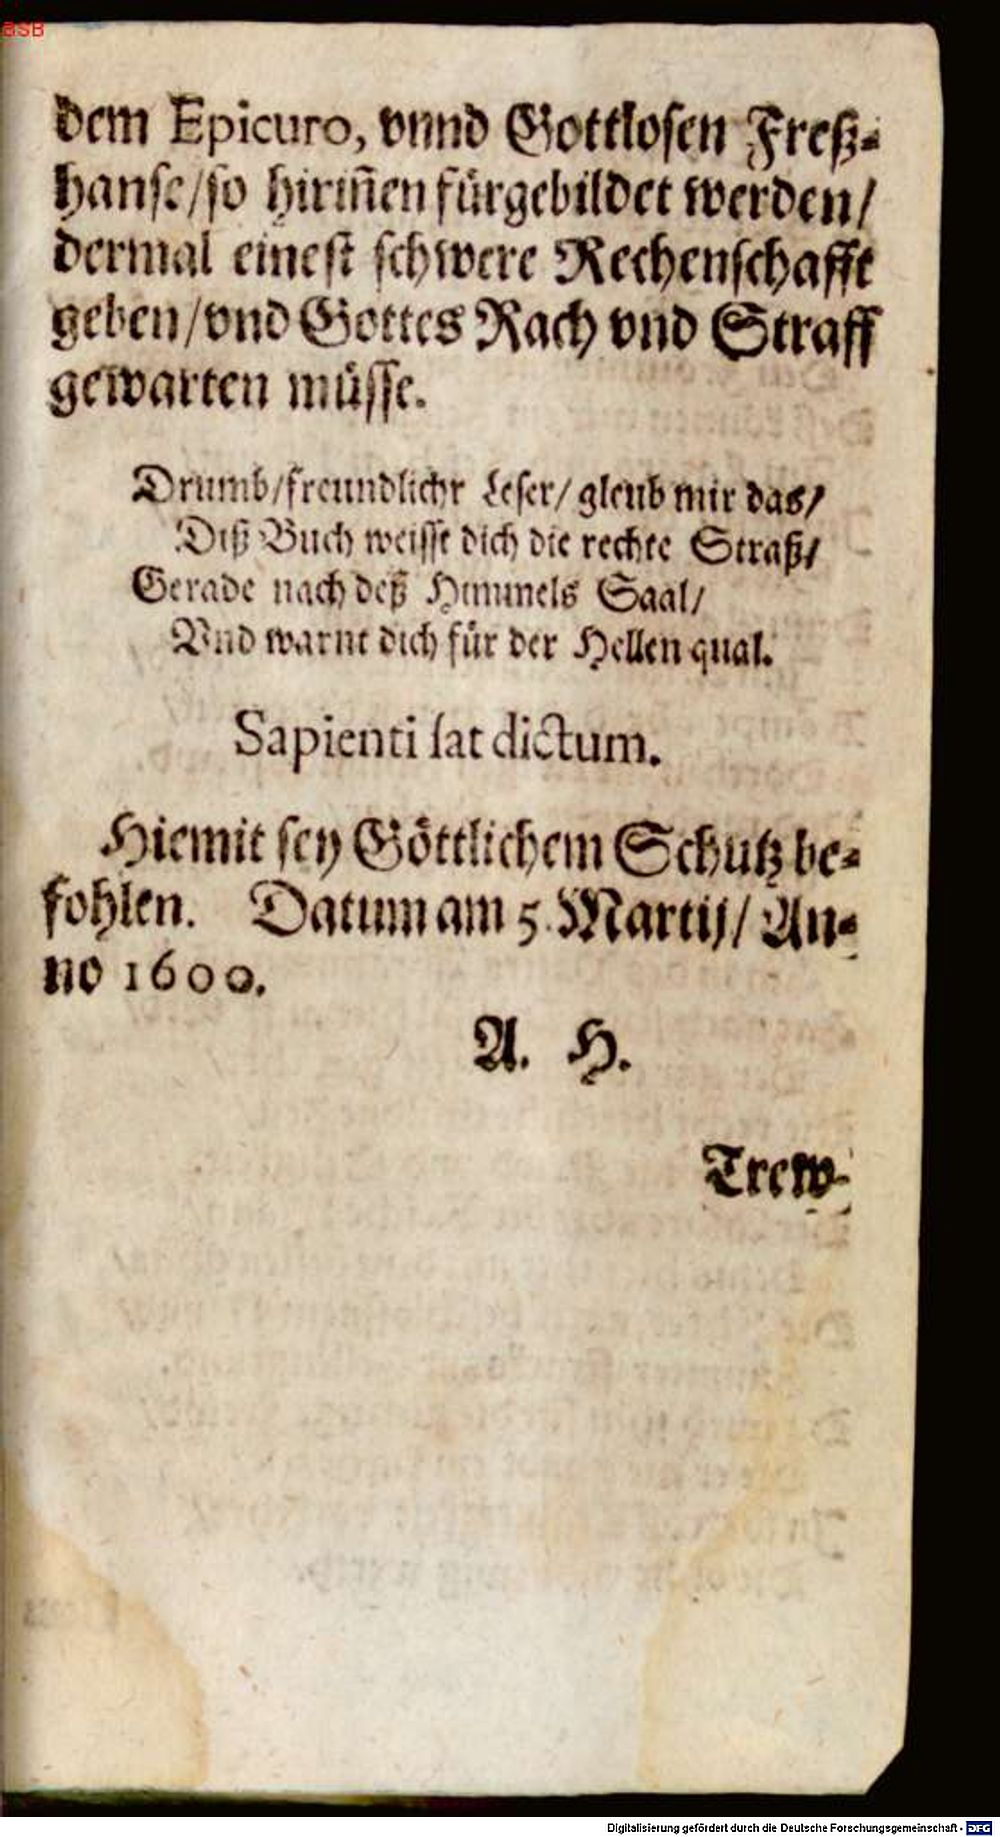 BSB
dem Epicuro, vnnd Gottlosen Freß-
hanse/so hiriñen fürgebildet werden/
dermal einest schwere Rechenschafft
geben/vnd Gottes Rach vnd Straff
gewarten müsse.
Drumb/freundlichr Leser/gleub mir das/
Diß Buch weisst dich die rechte Straß/
Gerade nach deß Himmels Saal/
Vnd warnt dich für der Hellen qual.
Sapienti sat dictum.
Hiemit sey Göttlichem Schutz be-
fohlen. Datum am 5. Martij/ An-
no 1600.
A. H.
Trew-
Digitalisierung gefördert durch die Deutsche Forschungsgemeinschaft - DFG